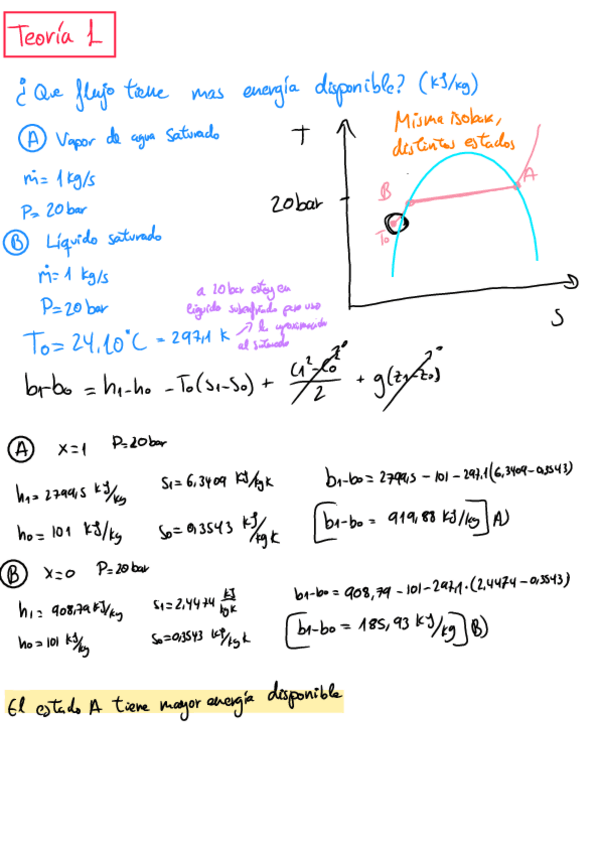 Teoría 1
¿Que flujo tiene mas energía disponible? (kJ/kg)
A Vapor de agua saturado
ṁ= 1 kg/s
P= 20 bar
B Líquido saturado
ṁ= 1 kg/s
P= 20 bar
T₀= 24,10°C = 297,1 K
a 20 bar estoy en
líquido subenfriado pero uso
la aproximación
al saturado
T
Misma isobar,
distintos estados
20 bar
B
A
T₀
S
b₁-b₀ = h₁-h₀ - T₀(s₁-s₀) + (c₁²-c₀²)/2 + g(z₁-z₀)
0
0
A x=1 P=20 bar
h₁= 2799,5 kJ/kg s₁= 6,3409 kJ/kgK b₁-b₀= 2799,5 - 101 - 297,1(6,3409-0,3543)
h₀= 101 kJ/kg s₀= 0,3543 kJ/kgK [b₁-b₀= 919,88 kJ/kg] A)
B x=0 P=20 bar
h₁= 908,79 kJ/kg s₁= 2,4474 kJ/kgK b₁-b₀= 908,79 - 101 - 297,1·(2,4474-0,3543)
h₀= 101 kJ/kg s₀=0,3543 kJ/kgK [b₁-b₀ = 185,93 kJ/kg] B)
El estado A tiene mayor energía disponible